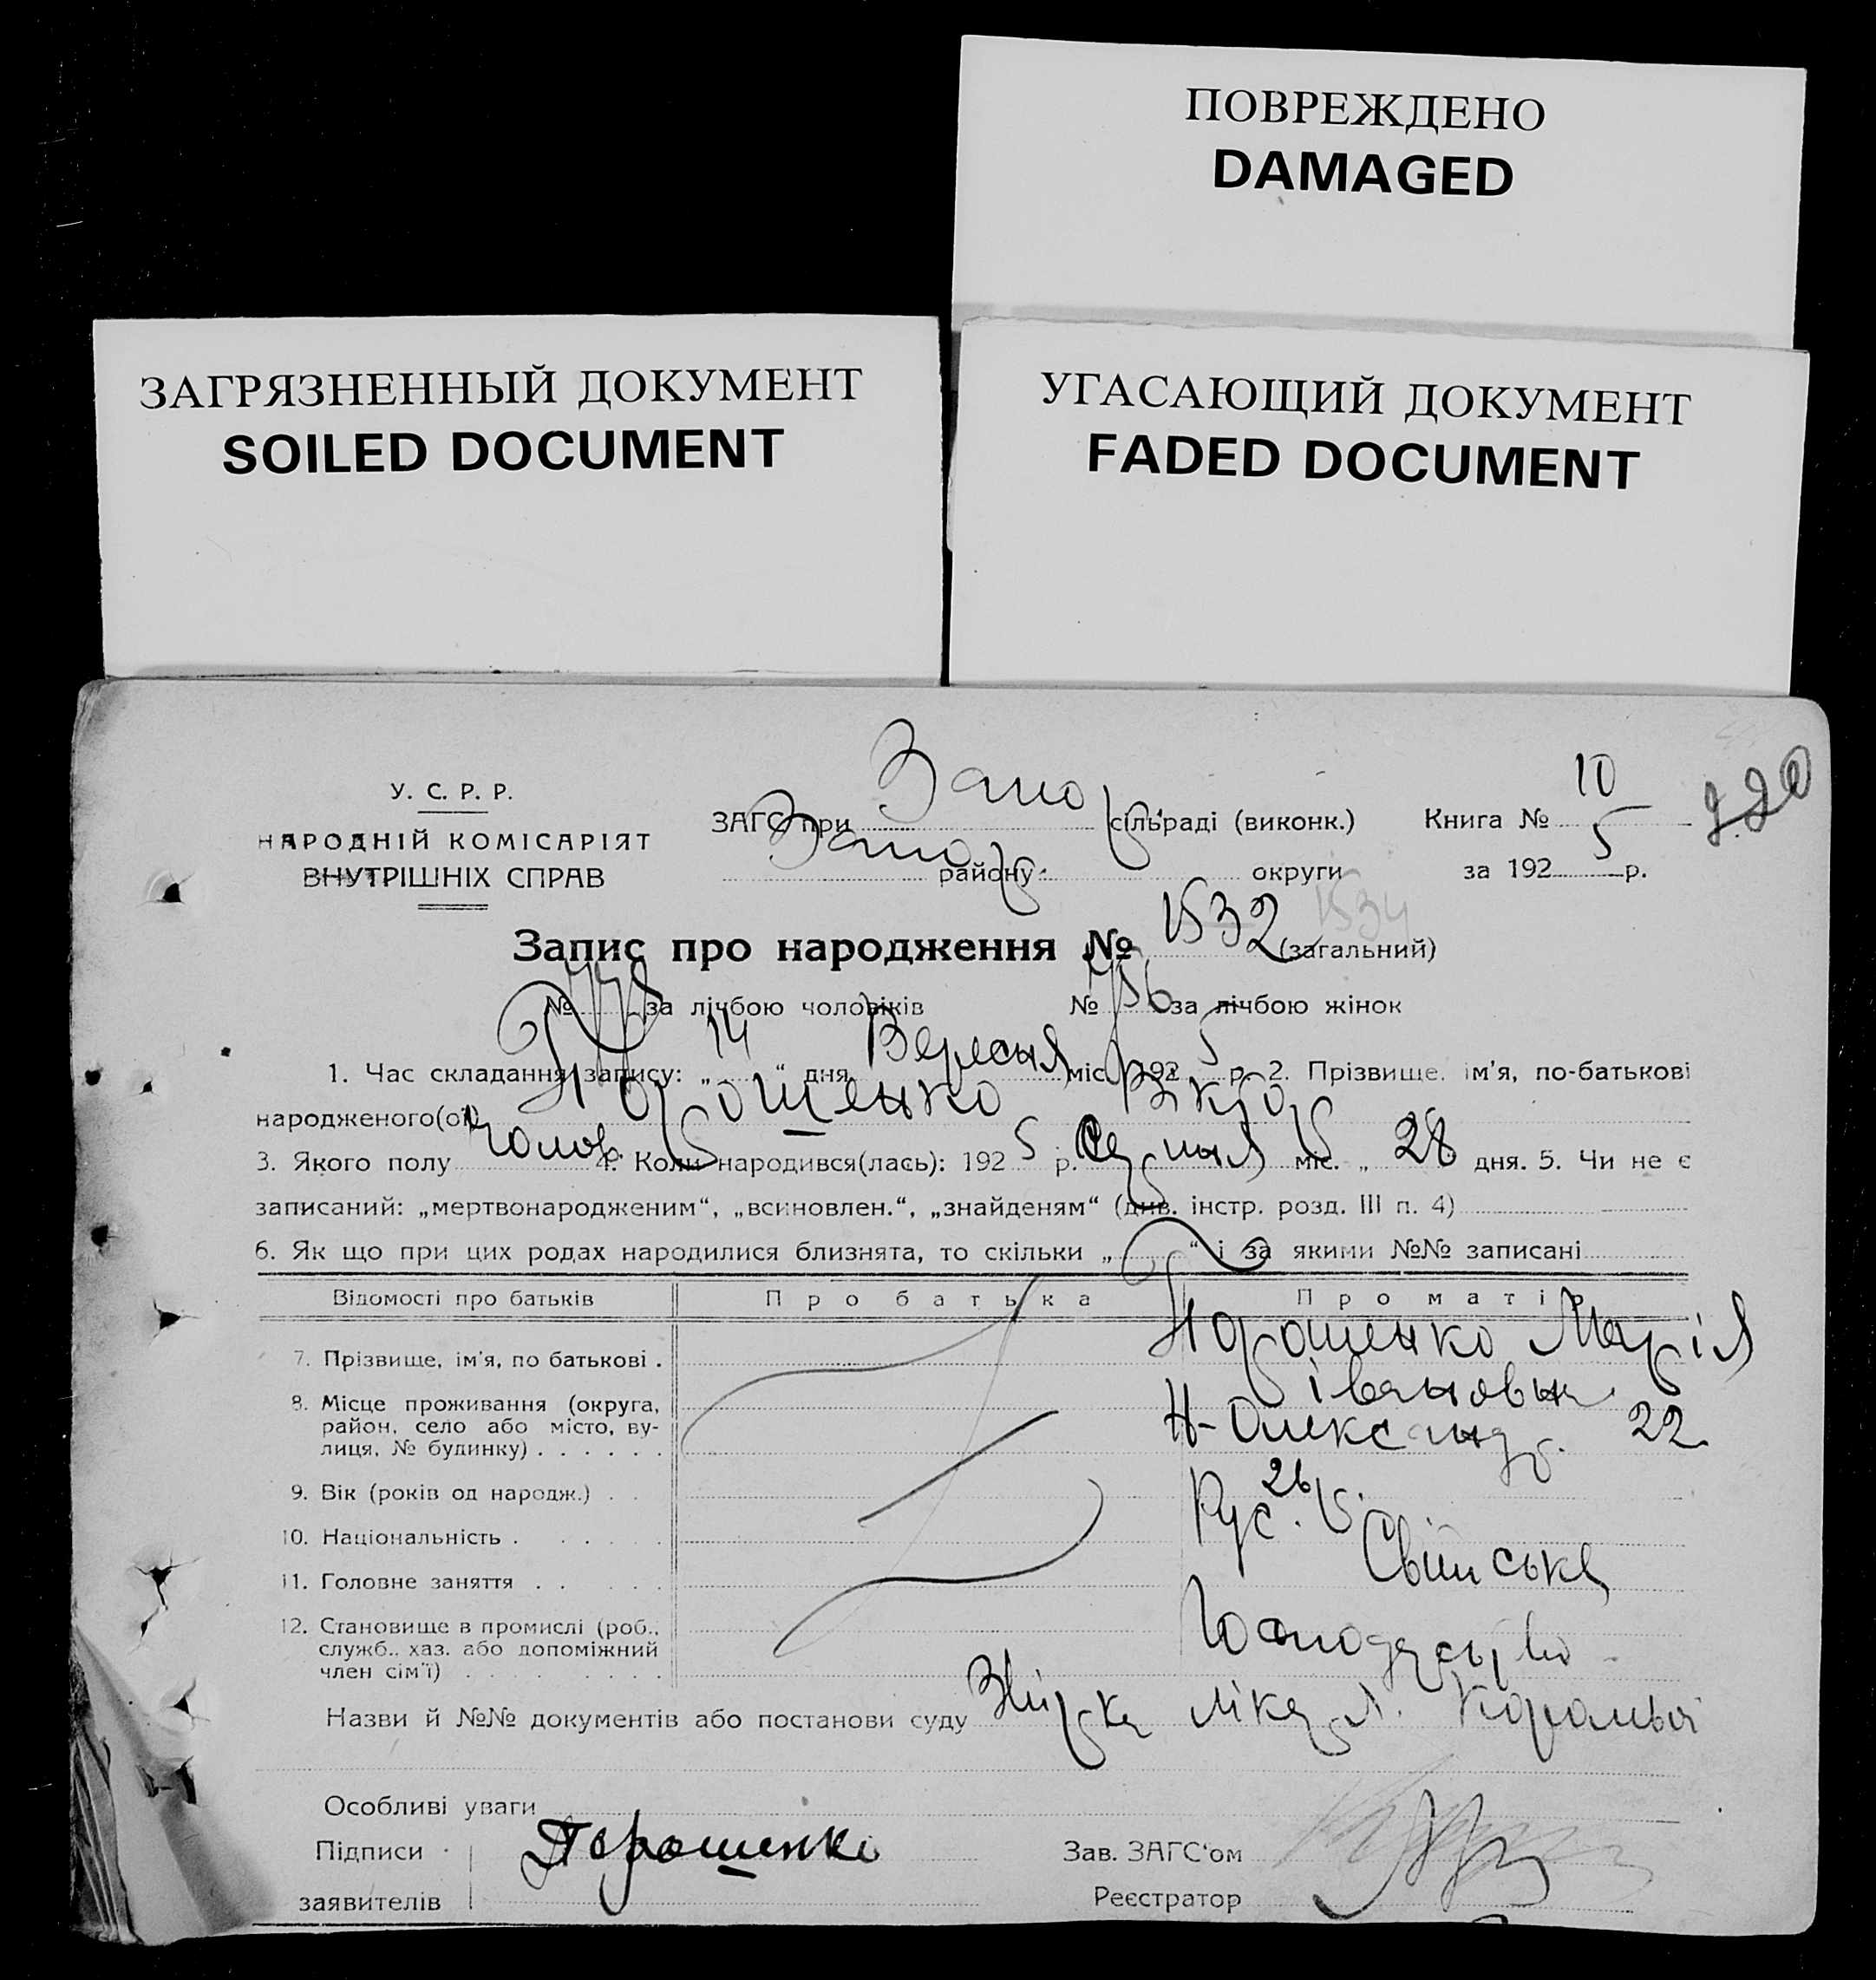 ПОВРЕЖДЕНО
DAMAGED
ЗАГРЯЗНЕННЫЙ ДОКУМЕНТ
SOILED DOCUMENT
УГАСАЮЩИЙ ДОКУМЕНТ
FADED DOCUMENT
У. С. Р. Р.
НАРОДНІЙ КОМІСАРІЯТ
ВНУТРІШНІХ СПРАВ
ЗАГС при Запор сільраді (виконк.) Книга № 10
Запор району округи за 1925 р.
220
Запис про народження № 1532 (загальний) 1534
№ 778 за лічбою чоловіків № 756 за лічбою жінок
1. Час складання запису: „14“ дня Вересня міс. 1925 р. 2. Прізвище, ім'я, по-батькові
народженого(ої) Порошенко Віктор
3. Якого полу Чолов. 4. Коли народився(лась): 1925 р. Серпня міс. „28 дня. 5. Чи не є
записаний: „мертвонародженим“, „всиновлен.“, „знайденям“ (див. інстр. розд. III п. 4)
6. Як що при цих родах народилися близнята, то скільки „ “ і за якими №№ записані
Відомості про батьків Про батька Про матір
7. Прізвище, ім'я, по батькові . Порошенко Марія
Івановна
8. Місце проживання (округа,
район, село або місто, ву-
лиця, № будинку) . . . . . . Н-Олександр. 22
9. Вік (років од народж.) . . 26
10. Національність . . . . . . Рус.
11. Головне заняття . . . . . Свійське
12. Становище в промислі (роб.,
служб., хаз. або допоміжний
член сім'ї) . . . . . . . Господарство
Назви й №№ документів або постанови суду лікар.
Особливі уваги
Підписи Порошенко Зав. ЗАГС'ом
заявителів Реєстратор